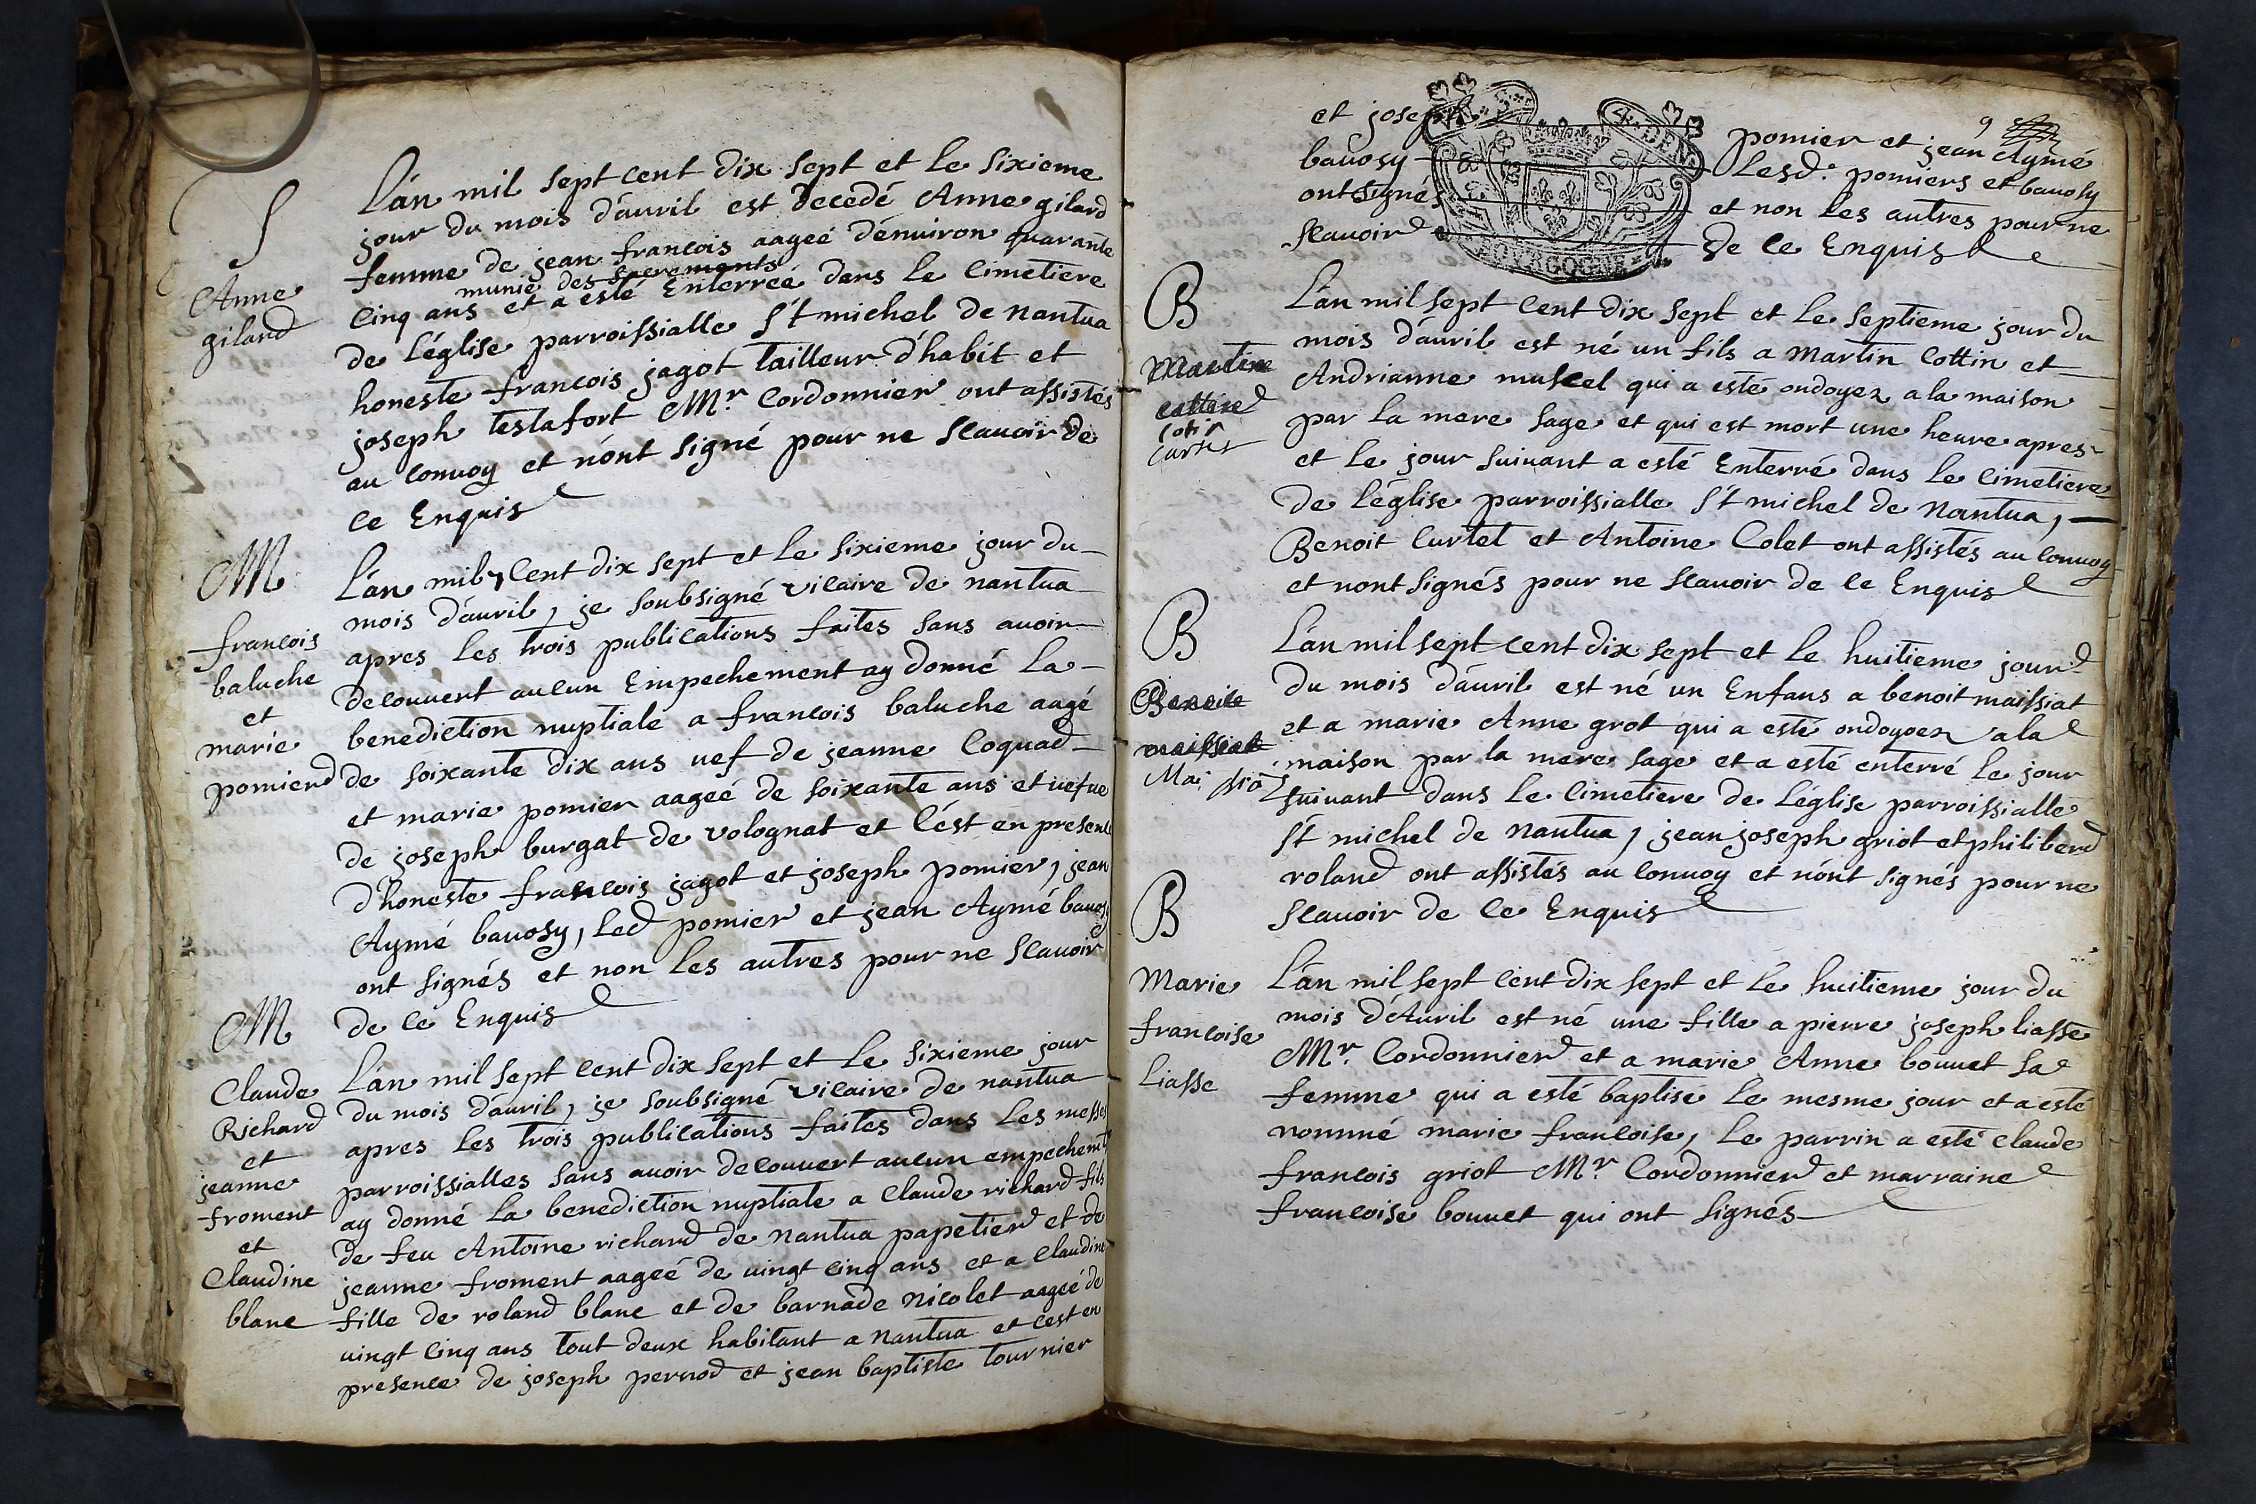 S
Anne
gilard
L'an mil sept cent dix sept et le sixieme
jour du mois d'auril est decedé Anne gilard
femme de jean francois aageé d'enuiron quarante
munie des sacrements
cinq ans et a esté Enterreé dans le cimetiere
de l'église parroissialle St michel de nantua
honeste francois jagot tailleur d'habit et
joseph testafort Mr. Cordonnier ont assistés
au conuoy et n'ont signé pour ne scauoir de
ce Enquis
M
francois
baluche
et
marie
pomier
L'an mil 7 Cent dix sept et le sixieme jour du
mois d'auril, je soubsigné vicaire de nantua
apres les trois publications faites sans auoir
decouuert aucun Empechement ay donné la
benediction nuptiale a francois baluche aagé
de soixante dix ans uef de jeanne Coquad
et marie pomier aageé de soixante ans et uefue
de joseph burgat de volognat et c'ést en presence
d'honeste francois jagot et joseph pomier, jean
Aymé bauosy, led pomier et jean Aymé bauosy
ont signés et non les autres pour ne scauoir
de ce Enquis
M
Claude
Richard
et
jeanne
froment
et
Claudine
blanc
L'an mil sept cent dix sept et le sixieme jour
du mois d'auril, je soubsigné vicaire de nantua
apres les trois publications faites dans les messes
parroissialles sans auoir decouuert aucun empechemt
ay donné la benediction nuptiale a Claude richard fils
de feu Antoine richard de nantua papetier et de
jeanne froment aageé de uingt cinq ans et a Claudine
fille de roland blanc et de barnade nicolet aageé de
uingt cinq ans tout deux habitant a nantua et c'est en
presence de joseph pernod et jean baptiste tournier
9
et joseph pomier et jean Aymé
bauosy Lesd: pomiers et bauosy
ont signés et non les autres pour ne
scauoir de ce Enquis
BOURGOGNE
B
Martine
cottin
cotin
curtet
L'an mil sept cent dix sept et le septieme jour du
mois d'auril est né un fils a Martin Cottin et
Andrianne muscel qui a esté ondoyez a la maison
par la mere sage et qui est mort une heure apres
et le jour suiuant a esté Enterré dans le cimetiere
de l'église parroissialle St michel de nantua,
Benoit Curtet et Antoine Colet ont assistés au conuoy
et nont signés pour ne scauoir de ce Enquis
B
Benoite
maissiat
L'an mil sept cent dix sept et le huitieme jour
du mois d'auril est né un Enfans a benoit maissiat
et a marie Anne grot qui a esté ondoyoez a la
maison par la mere sage et a esté enterré le jour
suiuant dans le cimetiere de l'église parroissialle
St michel de nantua, jean joseph griot et philiberd
roland ont assistés au conuoy et n'ont signés pour ne
scauoir de ce Enquis
B
Marie
francoise
Liasse
L'an mil sept cent dix sept et le huitieme jour du
mois d'Auril est né une fille a pierre joseph liasse
Mr. Cordonnier et a marie Anne bouuet sa
femme qui a esté baptisé le mesme jour et a esté
nommé marie francoise, le parrin a esté claude
francois griot Mr. Cordonnier et marraine
francoise bouuet qui ont signés